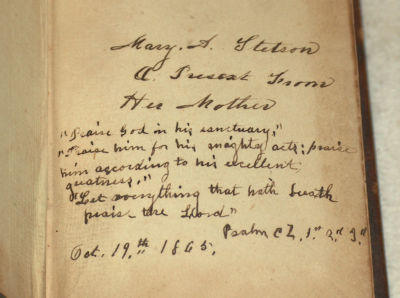 Mary. A. Stetson
A Present From
Her Mother
"Praise God in his sanctuary,"
"Praise him for his mighty acts; praise
him according to his excellent
greatness,"
"Let everything that hath breath
praise the Lord"
Psalm CL. 1st 2nd 3rd
Oct. 19th 1865.